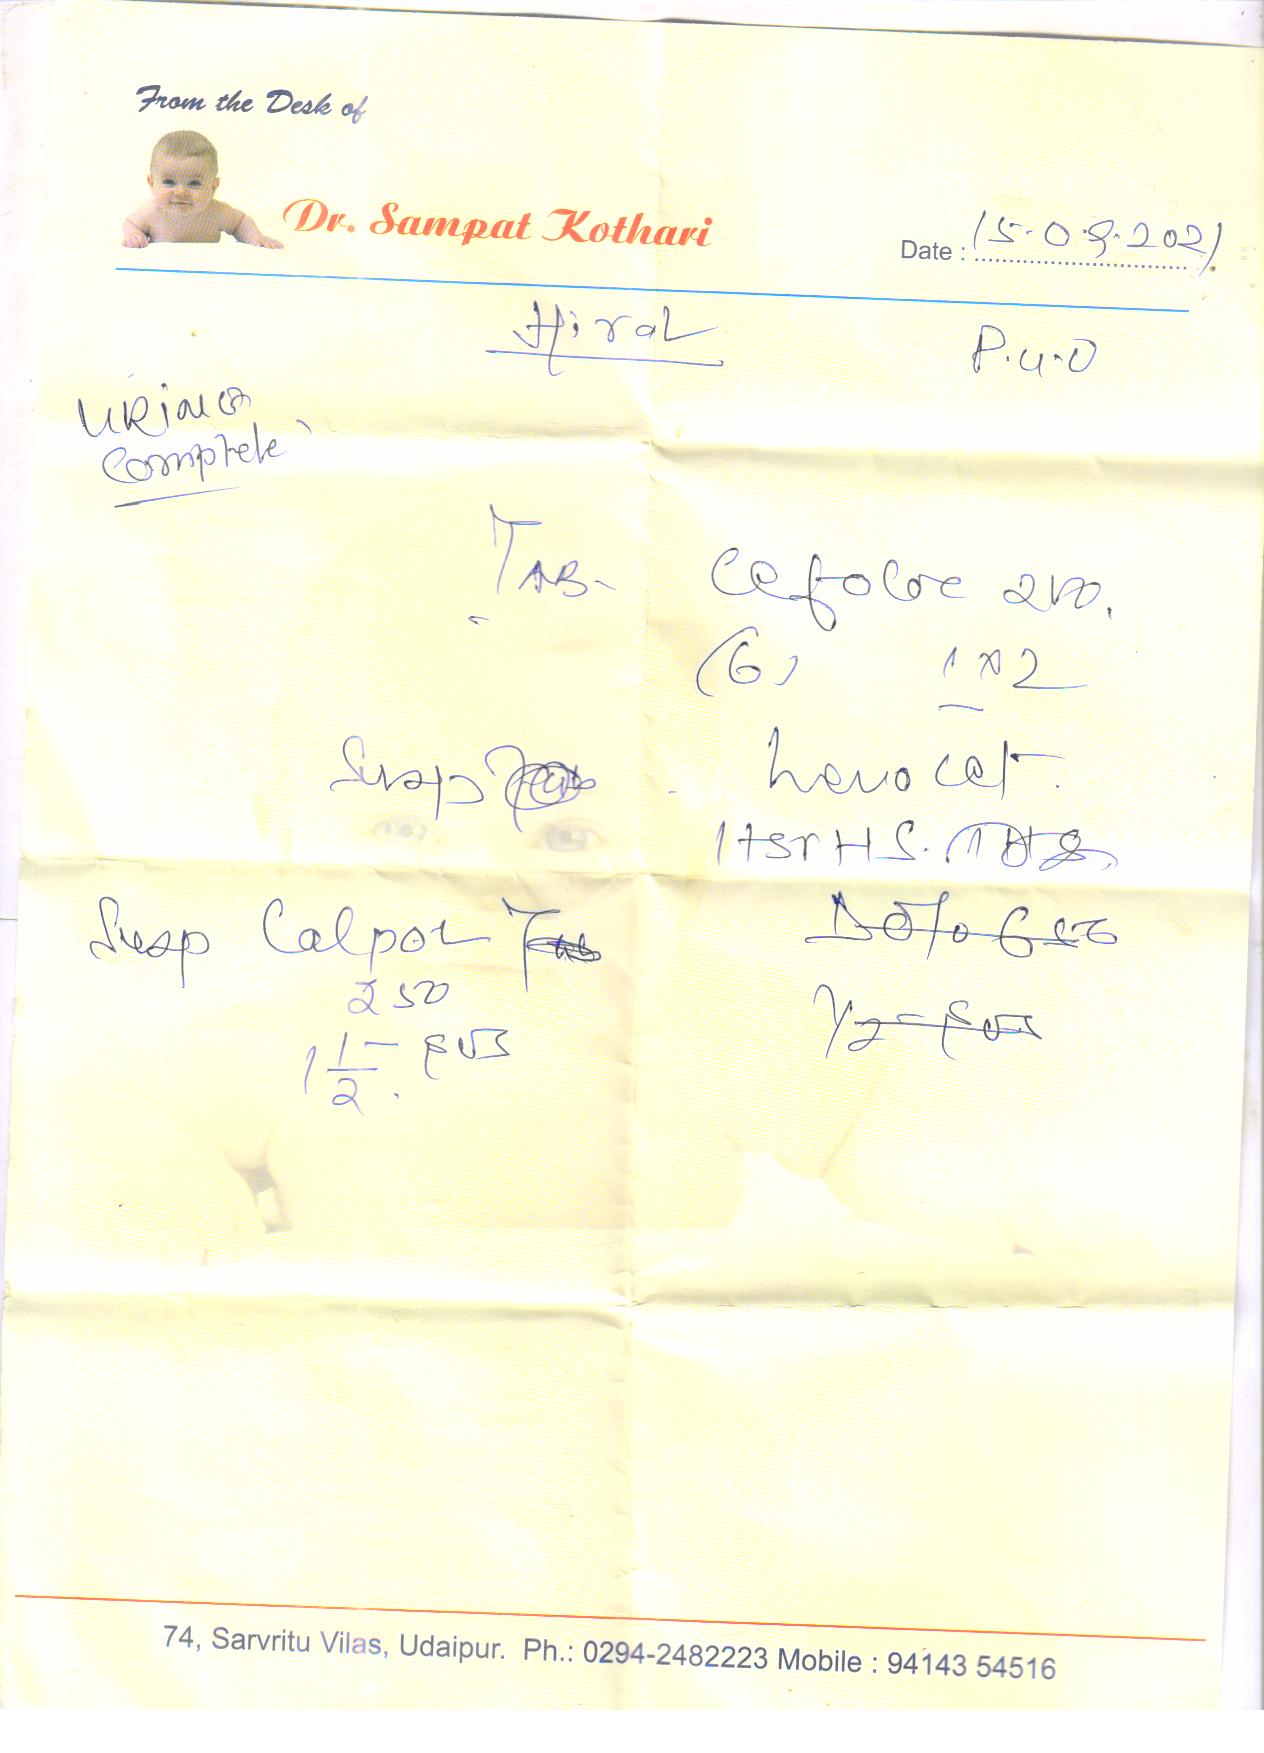 From the Desk of
Dr. Sampat Kothari
Date : 15.09.2021
Hiral P.U.O
URiNe
Complete
TAB- Cefoloc 200.
(6) 1x2
Susp Levocet
1 tsr HS.
Susp Calpol Dolo 650
250
1 1/2 - sos 1/2 - sos
74, Sarvritu Vilas, Udaipur. Ph.: 0294-2482223 Mobile : 94143 54516